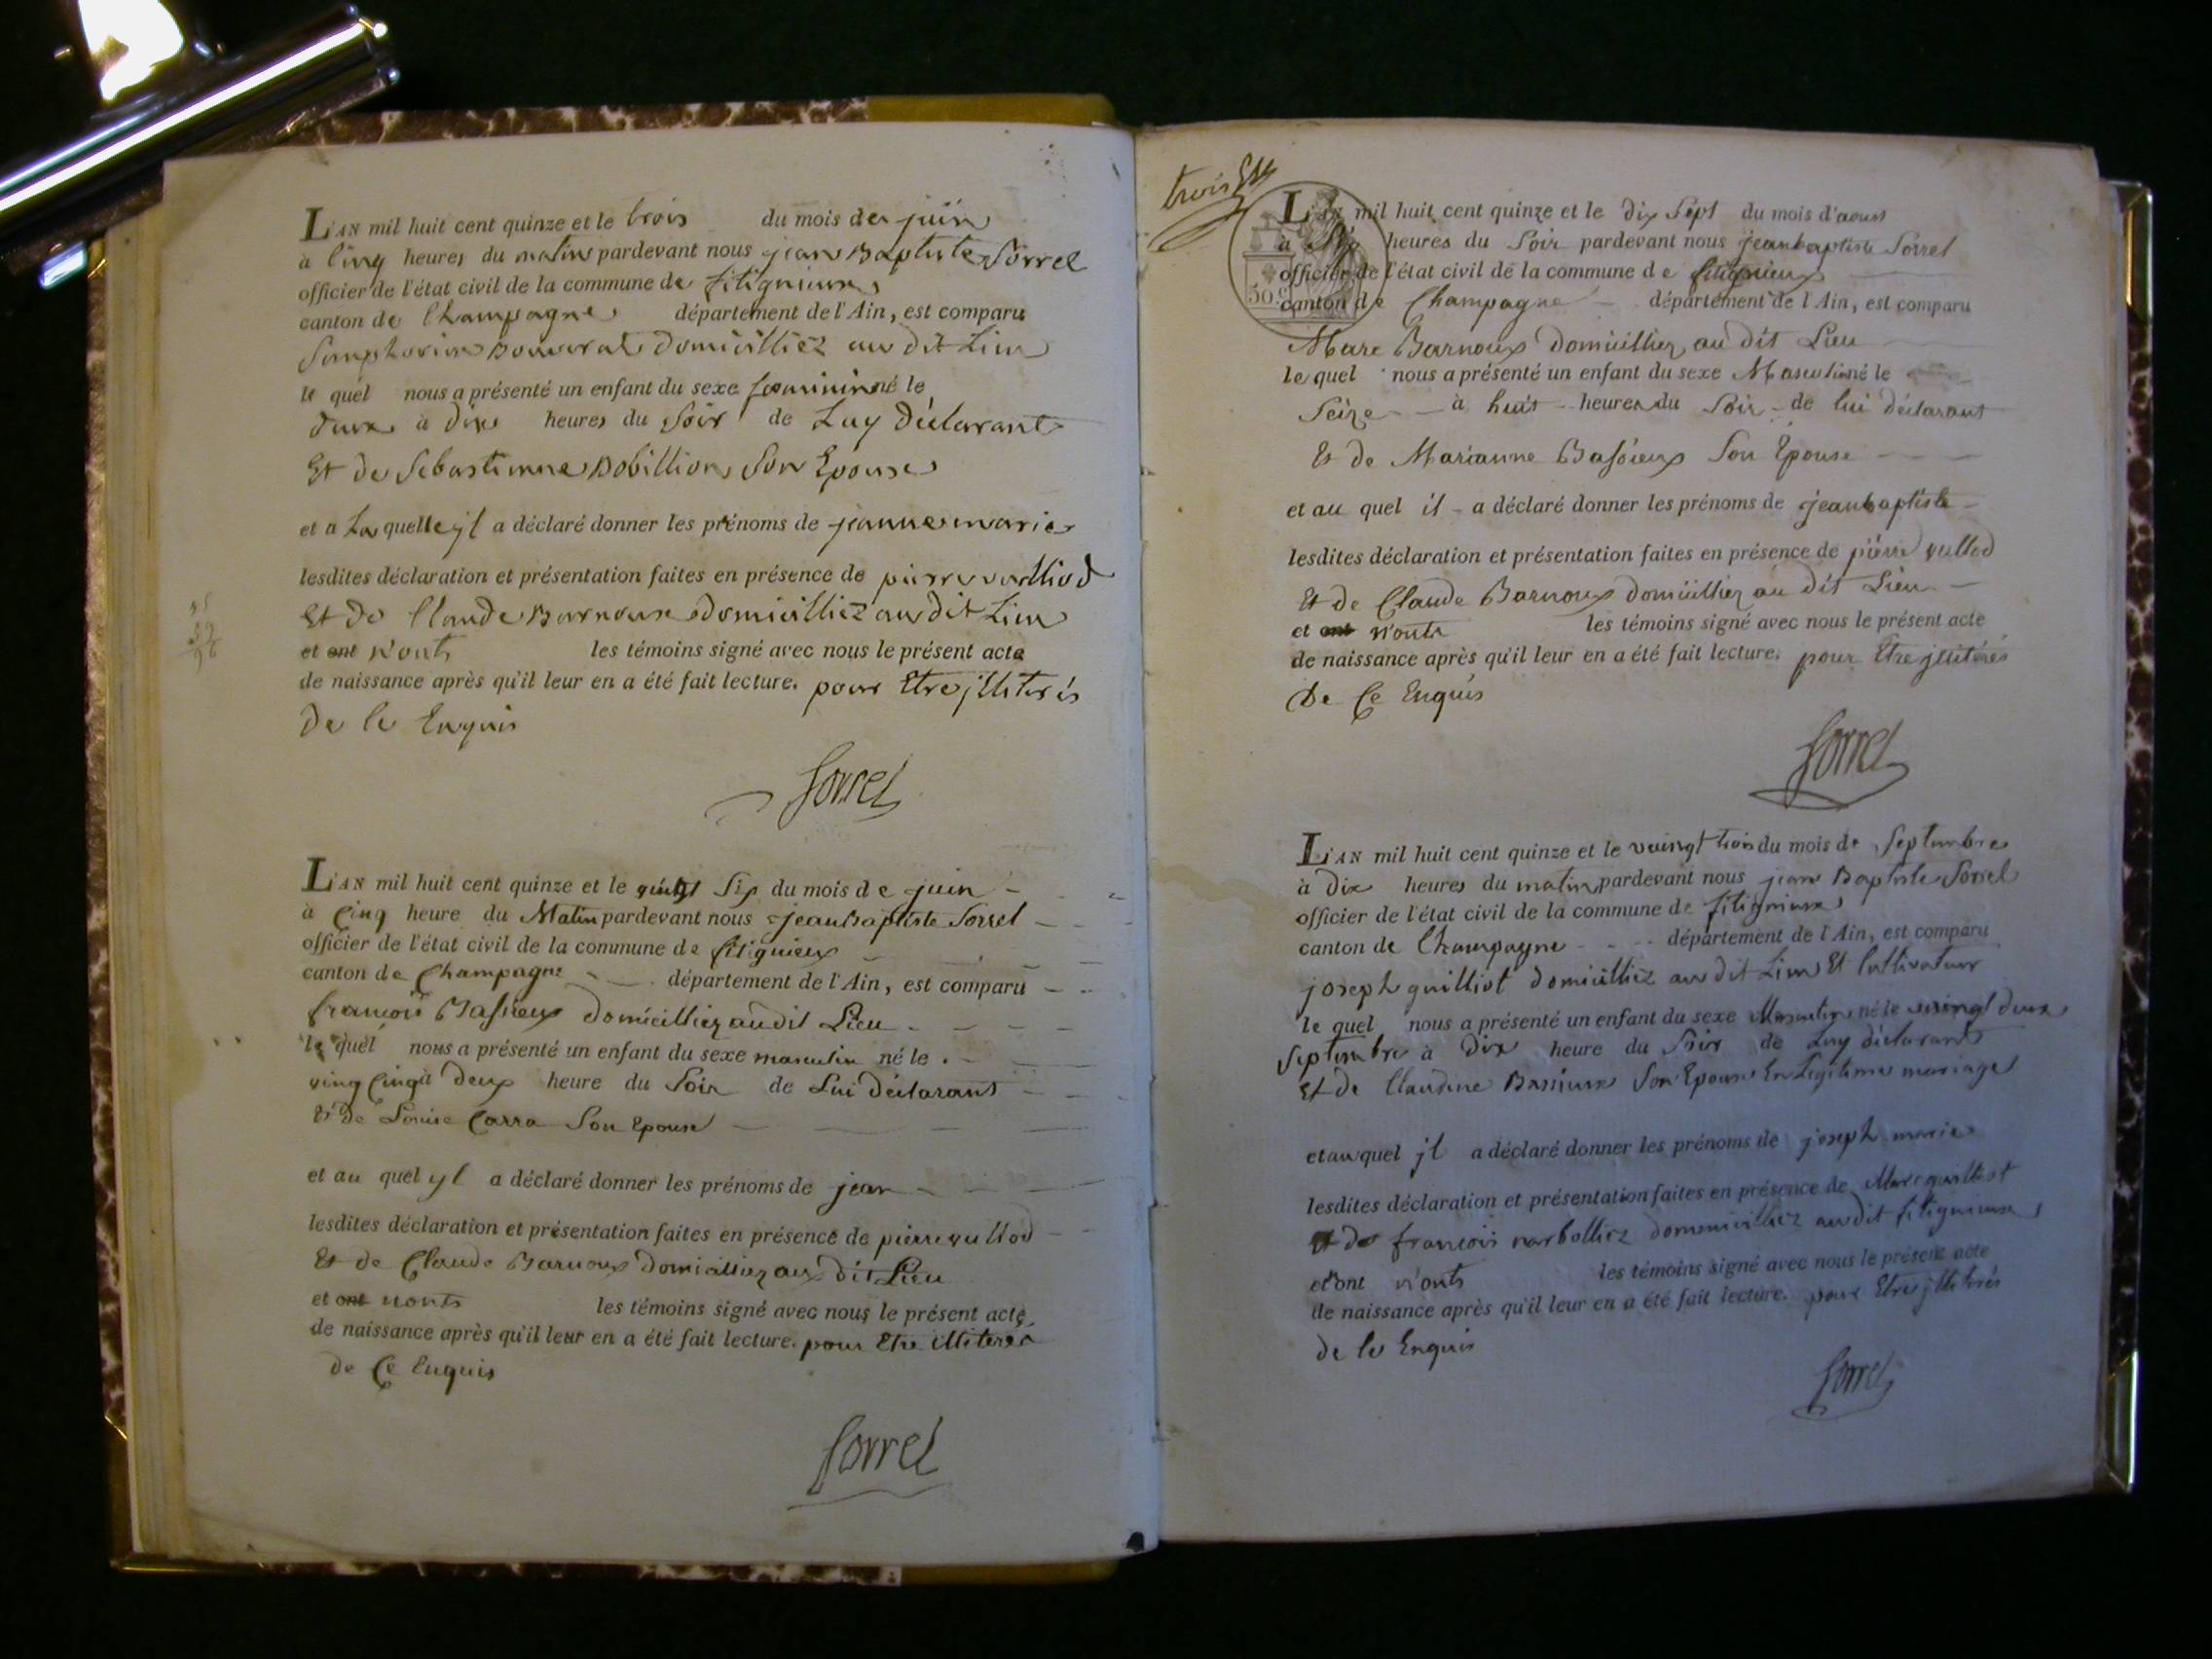 L'AN mil huit cent quinze et le trois du mois de juin
à Cinq heures du matin pardevant nous jean Baptiste Sorrel
officier de l'état civil de la commune de fitignieux
canton de Champagne département de l'Ain, est comparu
Simphorien Bouverat domicilliez au dit Lieu
le quel nous a présenté un enfant du sexe fœminin né le
deux à dix heures du Soir de Luy déclarant
Et de Sebastienne Bobillion Son Epouse
et a La quelle jl a déclaré donner les prénoms de jeanne marie
lesdites déclaration et présentation faites en présence de pierre vulliod
Et de Claude Barnoux domicilliez au dit Lieu
et ont n'onts les témoins signé avec nous le présent acte
de naissance après qu'il leur en a été fait lecture. pour Etre jlliterés
de Ce Enquis
Sorrel
L'AN mil huit cent quinze et le vingt Six du mois de juin
à Cinq heure du Matin pardevant nous jean Baptiste Sorrel
officier de l'état civil de la commune de fitignieux
canton de Champagne département de l'Ain, est comparu
francois Bassieux domicilliez au dit Lieu
le quel nous a présenté un enfant du sexe masculin né le
ving Cinq à deux heure du Soir de Lui déclarant
Et de Louise Carra Son Epouse
et au quel yl a déclaré donner les prénoms de jean
lesdites déclaration et présentation faites en présence de pierre vullod
Et de Claude Barnoux domicilliez au dit Lieu
et ont nonts les témoins signé avec nous le présent acte
de naissance après qu'il leur en a été fait lecture. pour Etre illiterés
de Ce Enquis
Sorrel
trois
50 c
L'AN mil huit cent quinze et le dix Sept du mois d'aoust
à Six heures du Soir pardevant nous jean baptiste Sorrel
officier de l'état civil de la commune de fitignieux
canton de Champagne département de l'Ain, est comparu
Marc Barnoux domicilliez au dit Lieu
le quel nous a présenté un enfant du sexe Masculin né le
Seize à huit heures du Soir de lui déclarant
Et de Marianne Bassieux Son Epouse
et au quel il a déclaré donner les prénoms de jean baptiste
lesdites déclaration et présentation faites en présence de pierre vullod
Et de Claude Barnoux domicilliez au dit Lieu
et ont n'onts les témoins signé avec nous le présent acte
de naissance après qu'il leur en a été fait lecture. pour Etre jlliterés
De Ce Enquis
Sorrel
L'AN mil huit cent quinze et le veingt trois du mois de Septembre
à Dix heures du matin pardevant nous jean Baptiste Sorrel
officier de l'état civil de la commune de fitignieux
canton de Champagne département de l'Ain, est comparu
joseph guilliot domicilliez au dit Lieu Et Cultivateur
le quel nous a présenté un enfant du sexe Masculin né le veingt deux
Septembre à Dix heure du Soir de Luy déclarant
Et de Claudine Bassieux Son Epouse En Legitime mariage
et au quel jl a déclaré donner les prénoms de joseph marie
lesdites déclaration et présentation faites en présence de Marc guilliot
Et de francois narbolliez domicilliez au dit fitignieux
et ont n'onts les témoins signé avec nous le présent acte
de naissance après qu'il leur en a été fait lecture. pour Etre jlliterés
de Ce Enquis
Sorrel